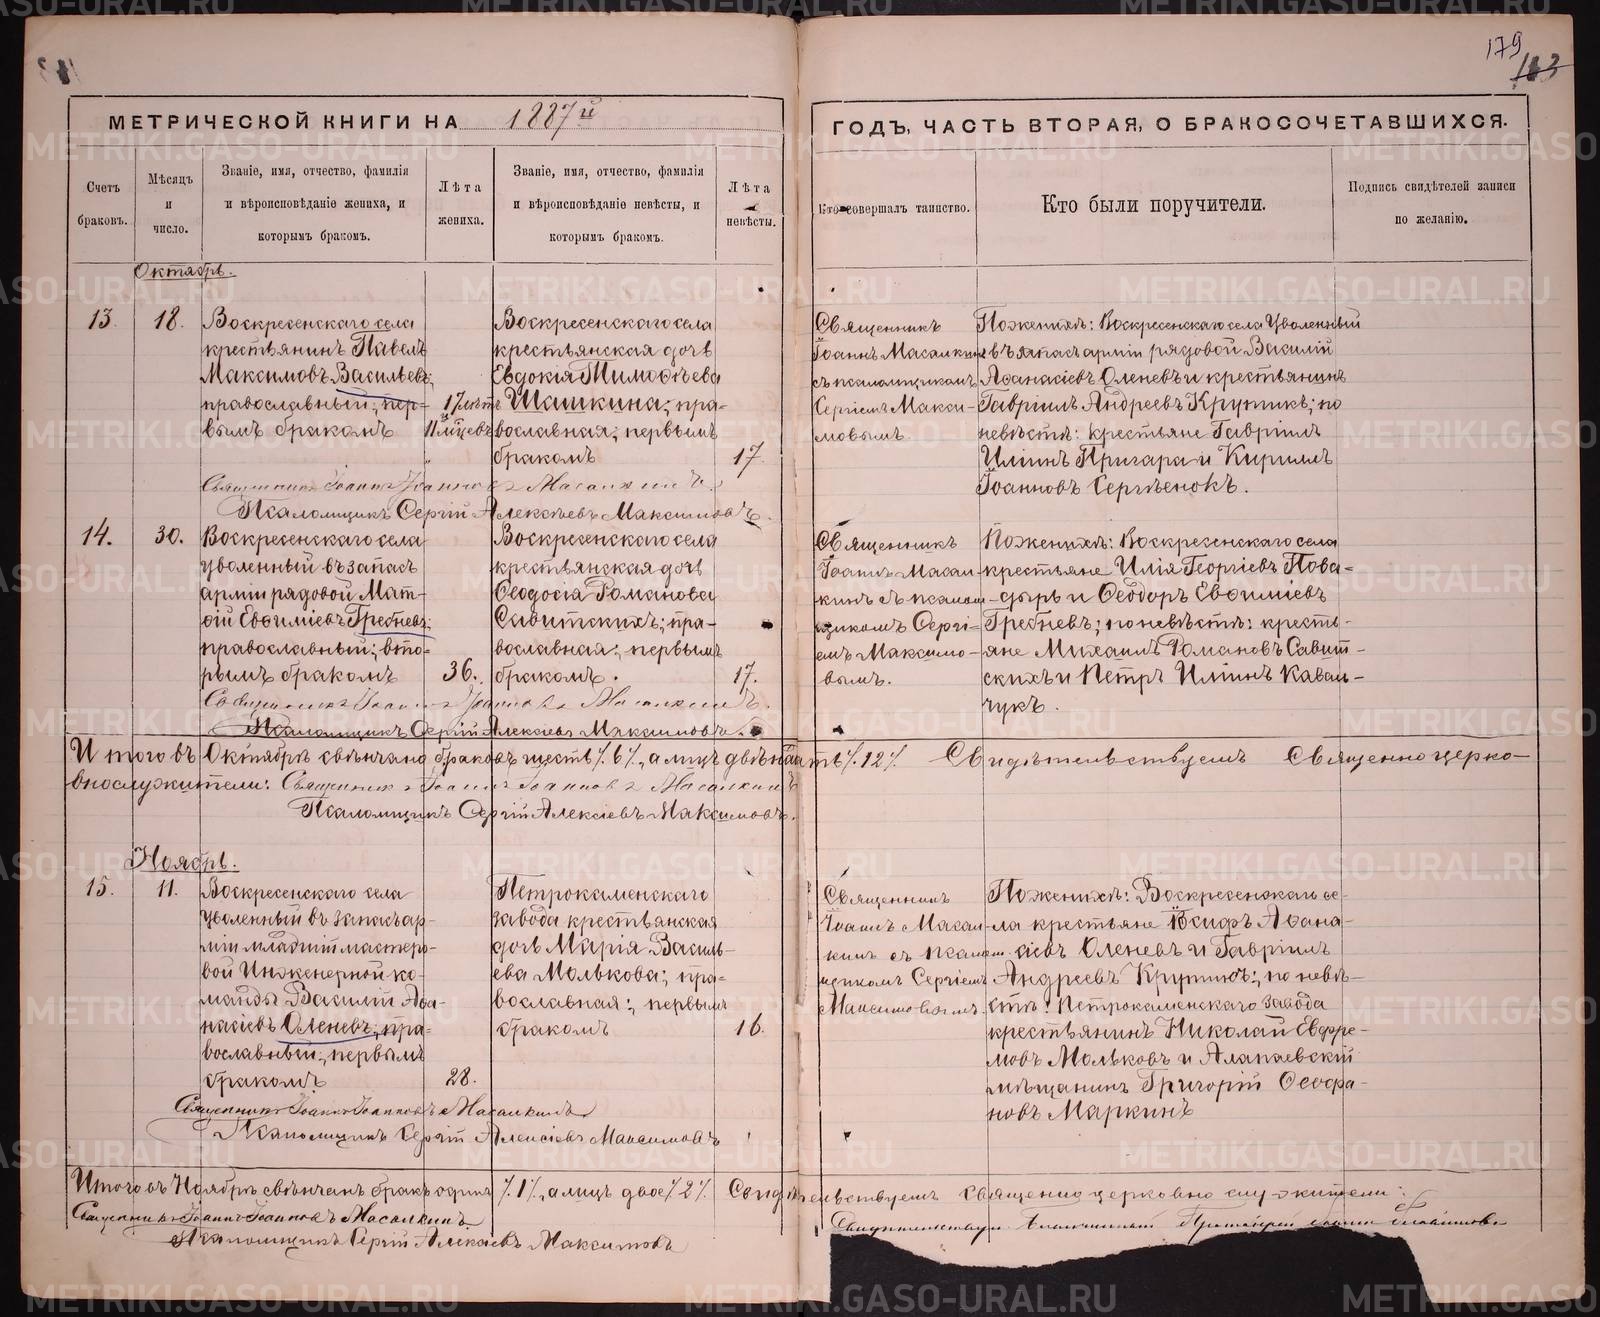 179
МЕТРИЧЕСКОЙ КНИГИ НА 1887й
ГОДЪ, ЧАСТЬ ВТОРАЯ, О БРАКОСОЧЕТАВШИХСЯ.
Счетъ
браковъ.
Мѣсяцъ
и
число.
Званіе, имя, отчество, фамилія
и вѣроисповѣданіе жениха, и
которымъ бракомъ.
Лѣта
жениха.
Званіе, имя, отчество, фамилія
и вѣроисповѣданіе невѣсты, и
которымъ бракомъ.
Лѣта
невѣсты.
Кто совершалъ таинство.
Кто были поручители.
Подпись свидѣтелей записи
по желанію.
Октябрь.
13.
18.
Воскресенскаго села
крестьянинъ Павелъ
Максимовъ Васильевъ,
православный, пер-
вымъ бракомъ
17 лѣтъ
11 мѣцевъ
Воскресенскаго села
крестьянская дочь
Евдокія Тимоѳѣева
Шашкина; пра-
вославная; первымъ
бракомъ
17.
Священникъ
Іоаннъ Масалкинъ
съ псаломщикомъ
Сергіемъ Макси-
мовымъ.
По женихѣ: Воскресенскаго села Уволенный
въ запасъ арміи рядовой Василій
Аѳанасіевъ Оленевъ и крестьянинъ
Гавріилъ Андреевъ Крупинъ; по
невѣстѣ: крестьяне Гавріилъ
Иліинъ Пригара и Кириллъ
Іоанновъ Сергѣенокъ.
Священникъ Іоаннъ Іоанновъ Масалкинъ.
Псаломщикъ Сергій Алексѣевъ Максимовъ.
14.
30.
Воскресенскаго села
уволенный въ запасъ
арміи рядовой Мат-
ѳій Евѳиміевъ Гребневъ;
православный; вто-
рымъ бракомъ
36.
Воскресенскаго села
крестьянская дочь
Ѳеодосія Романова
Савитскихъ; пра-
вославная; первымъ
бракомъ.
17.
Священникъ
Іоаннъ Масал-
кинъ съ псалом-
щикомъ Сергі-
емъ Максимо-
вымъ.
По женихѣ: Воскресенскаго села
крестьяне Илія Георгіевъ Пова-
дырь и Ѳеодоръ Евѳиміевъ
Гребневъ; по невѣстѣ: кресть-
яне Михаилъ Романовъ Савит-
скихъ и Петръ Иліинъ Каваль-
чукъ.
Священникъ Іоаннъ Іоанновъ Масалкинъ.
Псаломщикъ Сергій Алексѣевъ Максимовъ.
Итого въ Октябрѣ свѣнчано браковъ шесть /.6/., а лицъ двѣнадцать /.12/. Свидѣтельствуемъ Священноцерко-
внослужители: Священникъ Іоаннъ Іоанновъ Масалкинъ
Псаломщикъ Сергій Алексіевъ Максимовъ.
Ноябрь.
15.
11.
Воскресенскаго села
Уволенный въ запасъ ар-
міи младшій мастеро-
вой Инженерной ко-
манды Василій Аѳа-
насіевъ Оленевъ; пра-
вославный; первымъ
бракомъ
28.
Петрокаменскаго
завода крестьянская
дочь Марія Василь-
ева Молькова; пра-
вославная; первымъ
бракомъ
16.
Священникъ
Іоаннъ Масал-
кинъ съ псалом-
щикомъ Сергіемъ
Максимовымъ.
По женихѣ: Воскресенскаго се-
ла крестьяне Іосифъ Аѳана-
сіевъ Оленевъ и Гавріилъ
Андреевъ Крупинъ; по невѣ-
стѣ: Петрокаменскаго завода
крестьянинъ Николай Евфре-
мовъ Мольковъ и Алапаевскій
мѣщанинъ Григорій Ѳеофа-
новъ Маркинъ
Священникъ Іоаннъ Іоанновъ Масалкинъ
Псаломщикъ Сергій Алексіевъ Максимовъ
Итого въ Ноябрѣ свѣнчанъ бракъ одинъ /.1/., а лицъ двое /.2/. Свидѣтельствуемъ священно церковно служители:
Священникъ Іоаннъ Іоанновъ Масалкинъ.
Псаломщикъ Сергій Алексѣевъ Максимовъ
METRIKI.GASO-URAL.RU